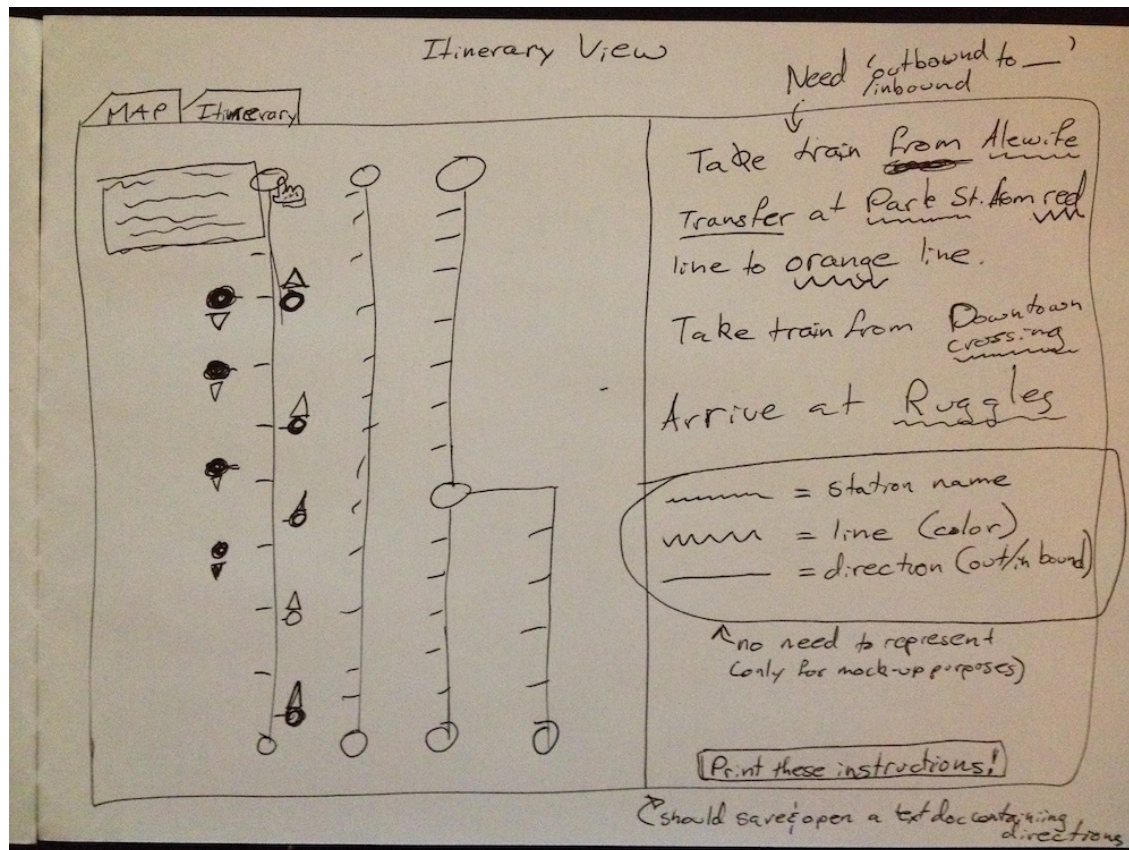 Itinerary View
Need 'outbound to __'
/inbound
MAP
Itinerary
Take train from Alewife
Transfer at Park St. from red
line to orange line.
Take train from Downtown
crossing
Arrive at Ruggles
= station name
= line (color)
= direction (out/in bound)
no need to represent
(only for mock-up purposes)
Print these instructions!
should save & open a text doc containing
directions